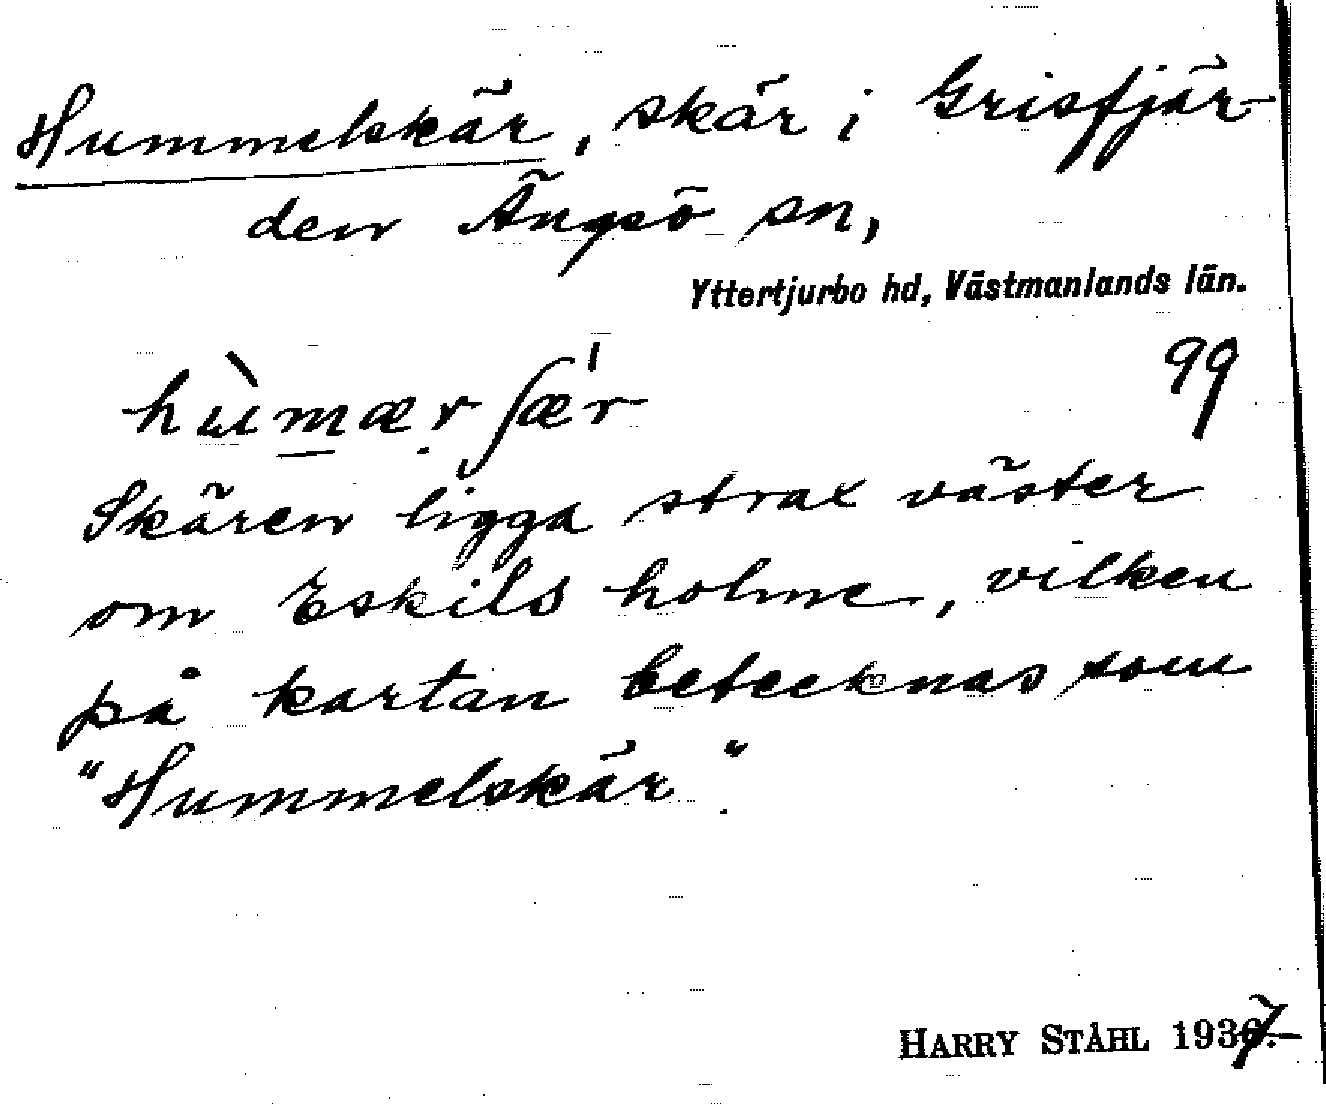 Hummelskär, skär i Grisfjär-
den Ängsö sn,
Yttertjurbo hd, Västmanlands län.
hùmærʃæ'r 99
Skären ligga strax väster
om Eskils holme, vilken
på kartan betecknas som
"Hummelskär".
HARRY STÅHL 1937